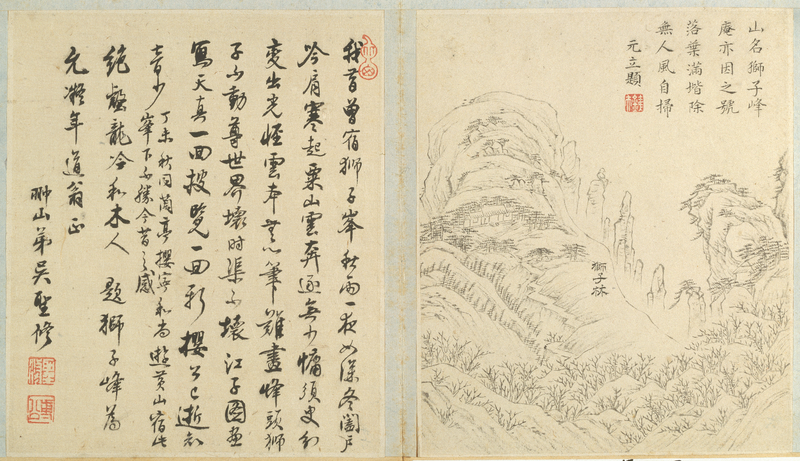 山名獅子峰
庵亦因之號
落葉滿堦除
無人風自掃
元立題
獅子林
我昔曾宿獅子峯秋雨一夜如深冬闔戶
吟肩寒起粟山雲奔逐無少慵須臾幻
變出光怪雲本無心筆難畫峰頭獅
子不動尊世界壞時渠不壞江子圖畫
寫天真一回披覽一回新櫻公已逝知
音少
丁未秋同蘭亭櫻寧和尚遊黃山宿此
峯下不勝今昔之感
絕龍冷木人 題獅子峰為
元凝年道翁正
弟吳聖修